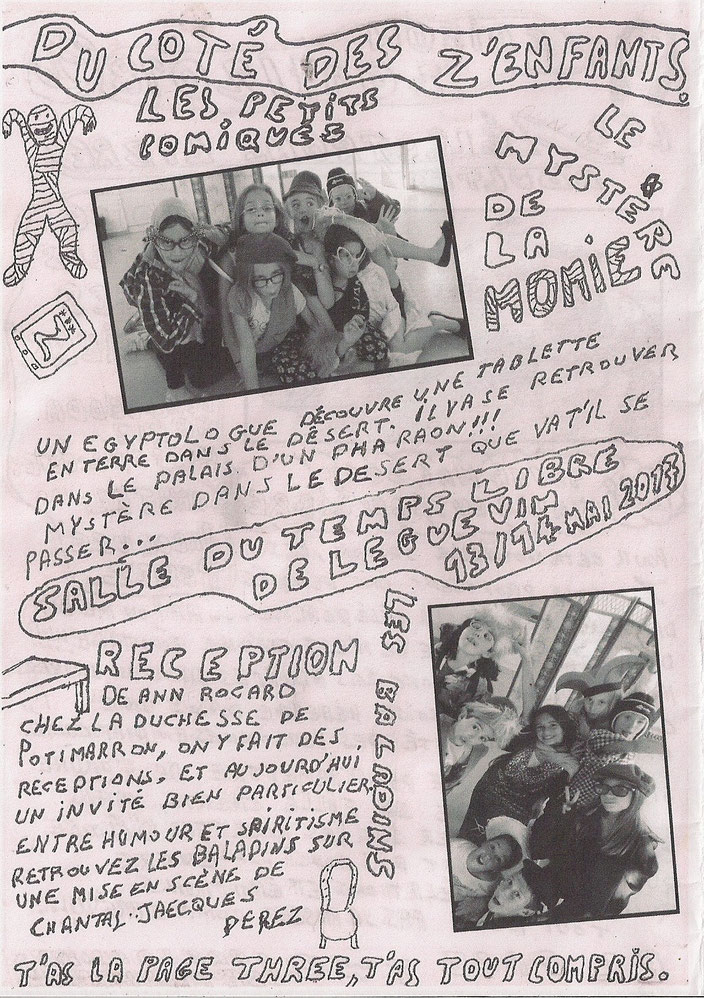 DU COTÉ DES Z'ENFANTS.
LES PETITS
COMIQUES
LE
MYSTÈRE
DE
LA
MOMIE
UN EGYPTOLOGUE DÉCOUVRE UNE TABLETTE
ENTERRE DANS LE DÉSERT. IL VA SE RETROUVER
DANS LE PALAIS D'UN PHARAON!!!
MYSTÈRE DANS LE DESERT QUE VAT'IL SE
PASSER...
SALLE DU TEMPS LIBRE
DE LEGUEVIN
13/14 MAI 2017
RECEPTION
DE ANN ROCARD
CHEZ LA DUCHESSE DE
POTIMARRON, ON Y FAIT DES
RECEPTIONS. ET AUJOURD'HUI
UN INVITÉ BIEN PARTICULIER.
ENTRE HUMOUR ET SPIRITISME
RETROUVEZ LES BALADINS SUR
UNE MISE EN SCÈNE DE
CHANTAL-JAECQUES
PEREZ
LES BALUDINS
T'AS LA PAGE THREE, T'AS TOUT COMPRIS.